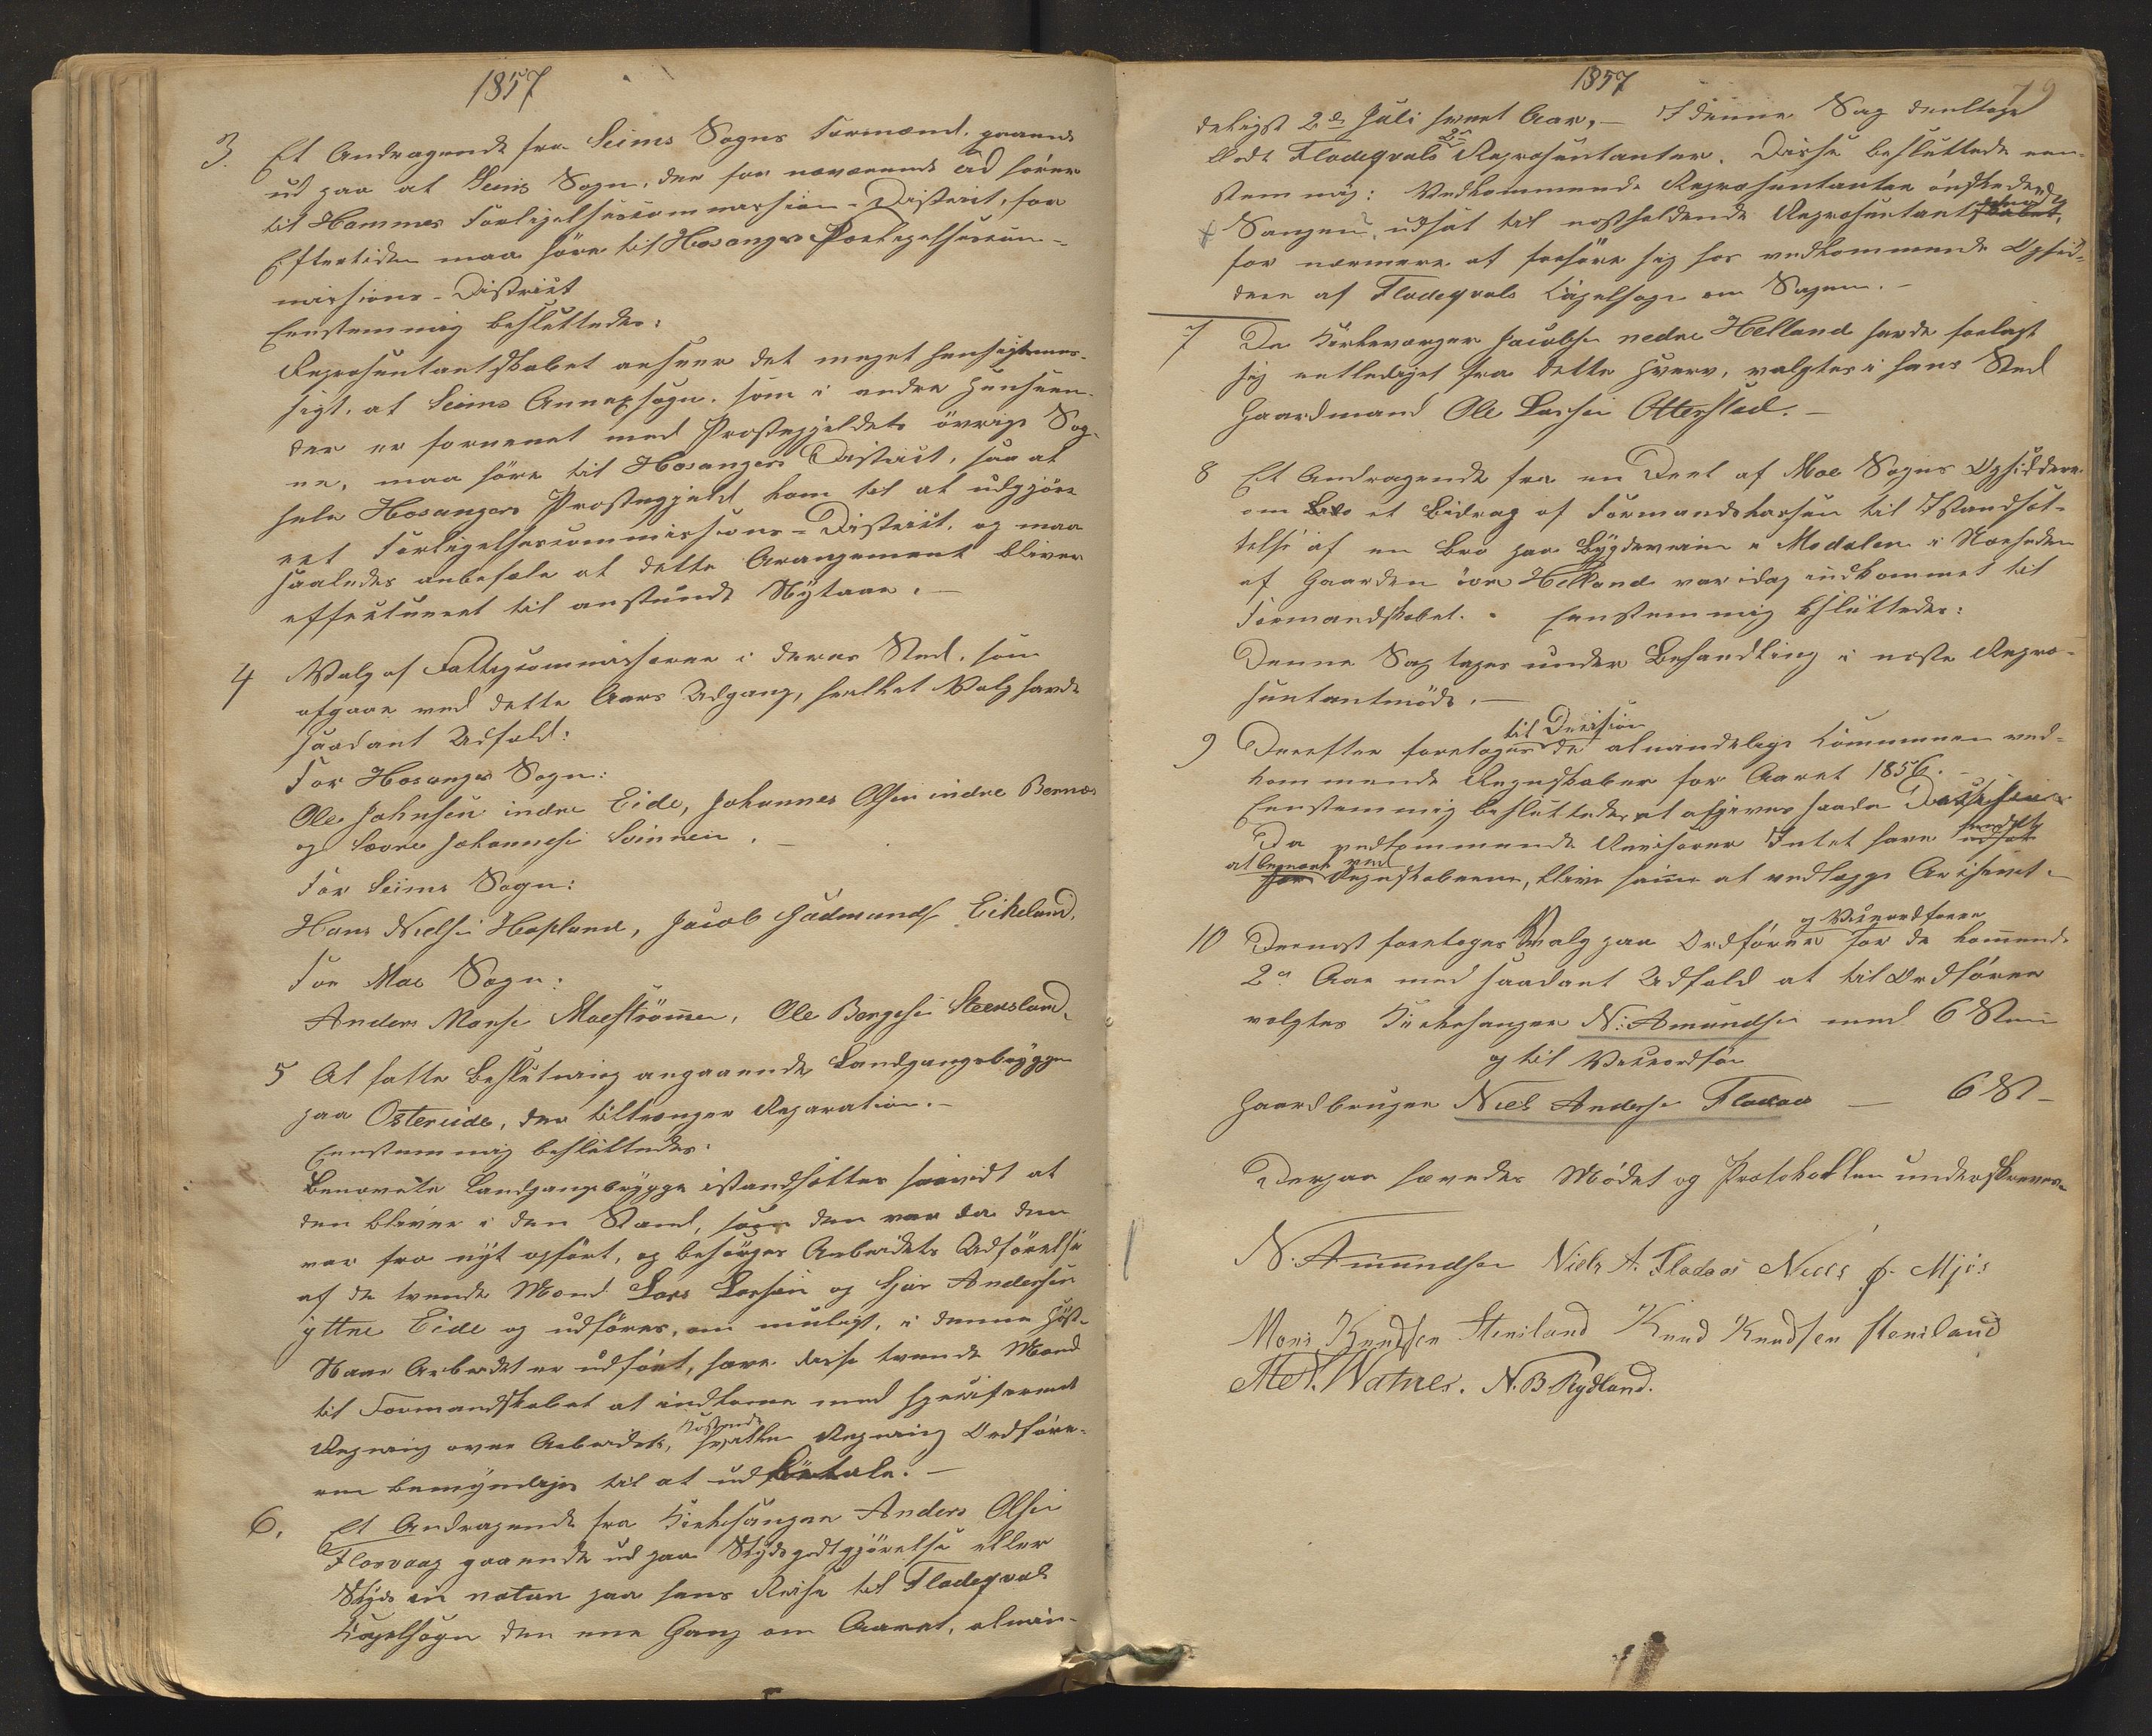 1857
3. Et Andragende fra Seims Sogns Formænd, gaaende
ud paa at Seims Sogn, der for nærværende Tid hører
til Hammer Forligelsescommissions-District, for
Eftertiden maa høre til Hosangers Forligelsescom-
missions-District
Eenstemmig besluttedes:
Repræsentantskabet ansseer det meget hensigtsmæs-
sigt, at Seims Annexsogn, som i andre Henseen-
der er forenet med Præstegjeldets övrige Sog-
ne, maa høre til Hosangers District, saa at
hele Hosangers Præstegjeld kom til at udgjøre
eet Forligelsescommissions-District, og maa
saaledes anbefale at dette Arangement bliver
effectueret til anstundende Nytaar.
4 Valg af Fattigcommissærer i deres Sted, som
afgaar ved dette Aars Udgang, hvilket Valg havde
saadant Udfald:
For Hosanger Sogn:
Ole Johnsen indre Eide, Johannes Olsen indre Bernæs
og Sevre Johannesen Soinnen.
For Seims Sogn:
Hans Nielsen Hopland, Jacob Gudmunds. Eikeland.
For Moe Sogn:
Anders Monsen Moestrømmen, Ole Bergesen Steensland.
5 At fatte Beslutning angaaende Landgangsbryggen
paa Ostereide, der tiltrænger Reparation.
Eenstemmig besluttedes:
Benævnte Landgangsbrygge istandsættes saavidt at
den bliver i den Stand, som den var da den
var fra nyt opført, og besørges Arbeidets Udførelse
af de tvende Mænd Lars Larsen og Sjur Andersen
yttre Eide og udføres, om muligt, i denne Høst.
Naar Arbeidet er udført, have disse tvende Mænd
til Formandskabet at indkomme med specificeret
Regning over Arbeidets Kostende, hvilken Regning Ordføre-
ren bemyndiges til at udbetale.
6. Et Andragende fra Kirkesanger Anders Olsen
Florvaag gaaende ud paa Skydsgodtgjørelse eller
Skyds in natura paa hans Reise til Fladeqvals
Capelsogn den ene Gang om Aaret, almin-
1857
79
deligst 2den Juli hvert Aar,- I denne Sag deeltoge
blot Fladeqvals 2de Repræsentanter. Disse besluttede een-
stemmig: Vedkommende Repræsentanter ønskede
Sagen udsat til næstholdende Repræsentantmøde,
for nærmere at forhøre sig hos vedkommende Opsid-
dere af Fladeqvals Capelsogn om Sagen.
7 Da Kirkeværger Jacobsen nedre Helland havde forlagt
sig entlediget fra dette Hverv, valgtes i hans Sted
Gaardmand Ole Larsen Otterstad.
8 Et Andragende fra en Deel af Moe Sogns Opsiddere
om et Bidrag af Formandskassen til Istandsæt-
telse af en Bro paa Bygdeveien i Modalen i Nærheden
af Gaarden övre Helland var idag indkommet til
Formandskabet. Eenstemmig besluttedes:
Denne Sag tages under Behandling i næste Repræ-
sentantmøde.
9 Derefter foretoges til Decision de almindelige Communen ved-
kommende Regnskaber for Aaret 1856.
Eenstemmig besluttedes at afgives saadan Decision
Da vedkommende Revisorer Intet have fundet
at bemærke ved Regnskaberne, blive samme at vedlægge Archivet.
10 Dernæst foretoges Valg paa Ordfører og Viceordfører for de kommende
2de Aar med saadant Udfald at til Ordfører
valgtes Kirkesanger N: Amundsen med 6 Stem
og til Viceordfør
Gaardbruger Niels Andersen Fladaas — 6 St —
Derpaa hævedes Mødet og Protokollen underskreves
N. Amundsen Niels A. Fladaas Niels J. Mjøs
Mons Knudsen Stenisland Knud Knudsen Stenisland
M. N. Watnes. N. B. Rydland.